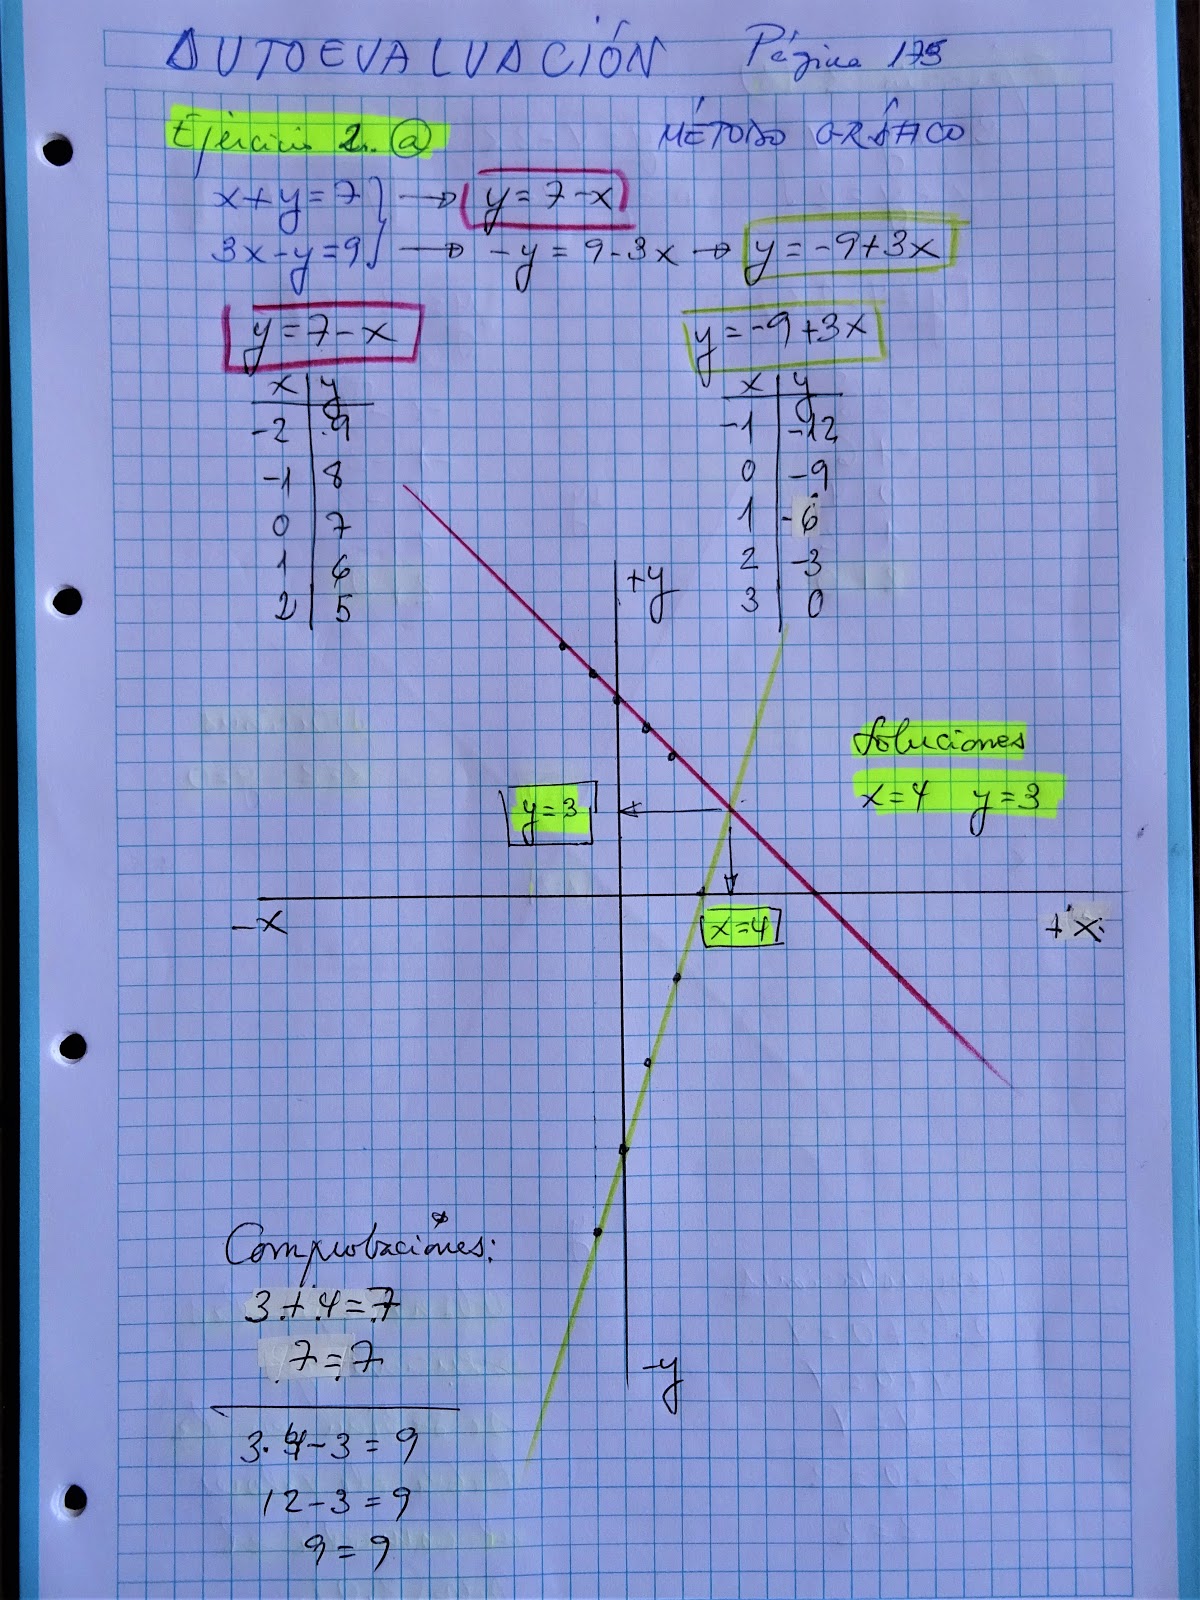 AUTOEVALUACIÓN Página 175
Ejercicio 2. a MÉTODO GRÁFICO
x+y=7 } → y=7-x
3x-y=9 } → -y=9-3x → y=-9+3x
y=7-x y=-9+3x
x | y x | y
-2 | 9 -1 | -12
-1 | 8 0 | -9
0 | 7 1 | -6
1 | 6 2 | -3
2 | 5 3 | 0
+y
Soluciones
x=4 y=3
y=3
x=4
-x +x
Comprobaciones:
3+4=7
7=7
-y
3·4-3=9
12-3=9
9=9